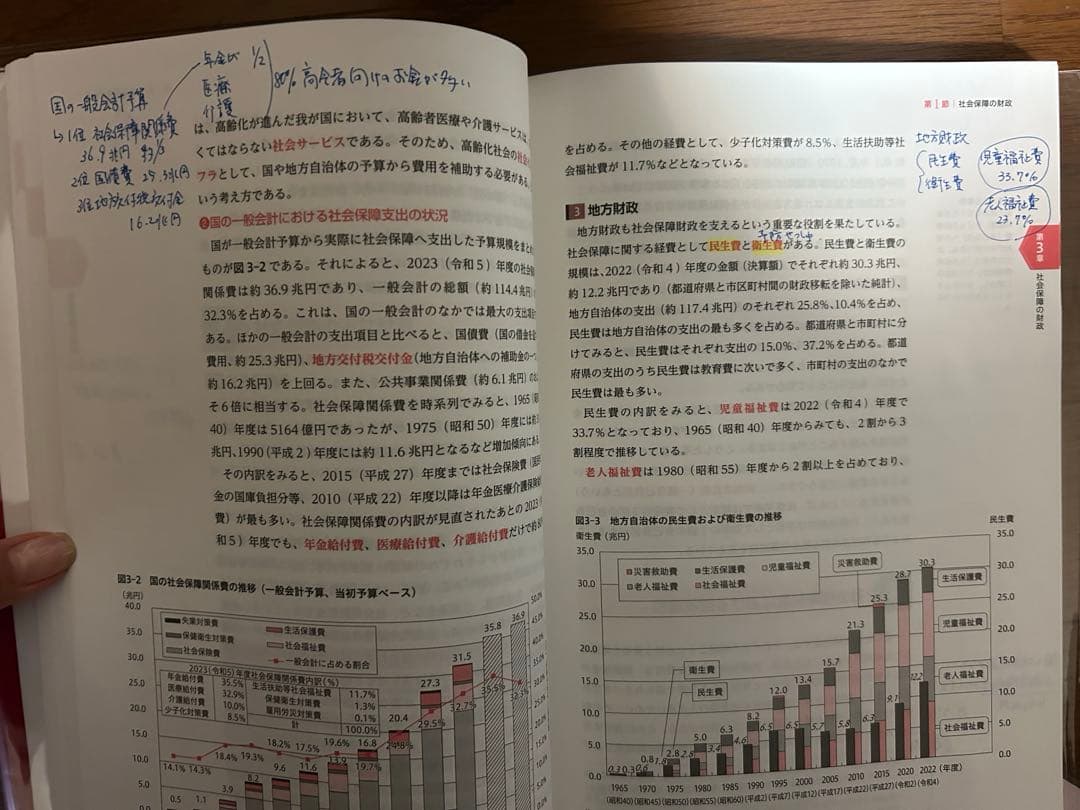 国の一般会計予算
↳ 1位 社会保障関係費
36.9兆円 約1/3
2位 国債費 25.3兆円
3位 地方交付税交付金
16.2兆円
年金 1/2
医療
介護
80% 高齢者向けのお金が多い
は、高齢化が進んだ我が国において、高齢者医療や介護サービスは
くてはならない社会サービスである。そのため、高齢化社会の社会
フラとして、国や地方自治体の予算から費用を補助する必要がある
いう考え方である。
❷国の一般会計における社会保障支出の状況
国が一般会計予算から実際に社会保障へ支出した予算規模をまとめ
ものが図3-2である。それによると、2023(令和5)年度の社会
関係費は約36.9兆円であり、一般会計の総額(約114.4兆円
32.3%を占める。これは、国の一般会計のなかでは最大の支出項目
ある。ほかの一般会計の支出項目と比べると、国債費(国の借金を
費用、約25.3兆円)、地方交付税交付金(地方自治体への補助金の一つ
約16.2兆円)を上回る。また、公共事業関係費(約6.1兆円)のお
そ6倍に相当する。社会保障関係費を時系列でみると、1965(昭
40)年度は5164億円であったが、1975(昭和50)年度には約
兆円、1990(平成2)年度には約11.6兆円となるなど増加傾向にある
その内訳をみると、2015(平成27)年度までは社会保険費(国民
金の国庫負担分等、2010(平成22)年度以降は年金医療介護保険給
費)が最も多い。社会保障関係費の内訳が見直されたあとの2023
和5)年度でも、年金給付費、医療給付費、介護給付費だけで約8
図3-2 国の社会保障関係費の推移(一般会計予算、当初予算ベース)
(兆円)
40.0
35.0
30.0
25.0
20.0
15.0
10.0
5.0
失業対策費 生活保護費
保健衛生対策費 社会福祉費
社会保険費 一般会計に占める割合
2023(令和5)年度社会保障関係費内訳(%)
年金給付費 35.5% 生活扶助等社会福祉費 11.7%
医療給付費 32.9% 保健衛生対策費 1.3%
介護給付費 10.0% 雇用労災対策費 0.1%
少子化対策費 8.5% 計 100.0%
50.0%
45.0%
40.0%
35.0%
30.0%
25.0%
20.0%
15.0%
10.0%
5.0%
14.1% 14.3% 18.4% 19.3% 18.2% 17.5% 19.6% 19.7% 24.8% 29.5% 32.7% 35.5% 32.3%
0.5 1.1 3.9 8.2 9.6 11.6 13.9 16.8 20.4 27.3 31.5 35.8 36.9
第1節 社会保障の財政
地方財政
民生費
衛生費
児童福祉費
33.7%
老人福祉費
23.7%
を占める。その他の経費として、少子化対策費が8.5%、生活扶助等社
会福祉費が11.7%などとなっている。
3 地方財政
地方財政も社会保障財政を支えるという重要な役割を果たしている。
社会保障に関する経費として民生費と衛生費がある。民生費と衛生費の
規模は、2022(令和4)年度の金額(決算額)でそれぞれ約30.3兆円、
約12.2兆円であり(都道府県と市区町村間の財政移転を除いた純計)、
地方自治体の支出(約117.4兆円)のそれぞれ25.8%、10.4%を占め、
民生費は地方自治体の支出の最も多くを占める。都道府県と市町村に分
けてみると、民生費はそれぞれ支出の15.0%、37.2%を占める。都道
府県の支出のうち民生費は教育費に次いで多く、市町村の支出のなかで
民生費は最も多い。
民生費の内訳をみると、児童福祉費は2022(令和4)年度で
33.7%となっており、1965(昭和40)年度からみても、2割から3
割程度で推移している。
老人福祉費は1980(昭和55)年度から2割以上を占めており、
第3章 社会保障の財政
図3-3 地方自治体の民生費および衛生費の推移
衛生費(兆円) 民生費
35.0
30.0
25.0
20.0
15.0
10.0
5.0
0.0
災害救助費 生活保護費 児童福祉費
老人福祉費 社会福祉費
災害救助費
衛生費
民生費
生活保護費
児童福祉費
老人福祉費
社会福祉費
35.0
30.0
25.0
20.0
15.0
10.0
5.0
0.0
0.3 0.3 0.6 0.8 1.8 2.8 2.8 5.0 3.4 6.3 4.6 8.2 6.5 12.0 6.5 13.4 5.7 15.7 5.8 21.3 6.3 25.3 9.1 28.7 12.2 30.3
1965 1970 1975 1980 1985 1990 1995 2000 2005 2010 2015 2020 2022 (年度)
(昭和40)(昭和45)(昭和50)(昭和55)(昭和60)(平成2)(平成7)(平成12)(平成17)(平成22)(平成27)(令和2)(令和4)